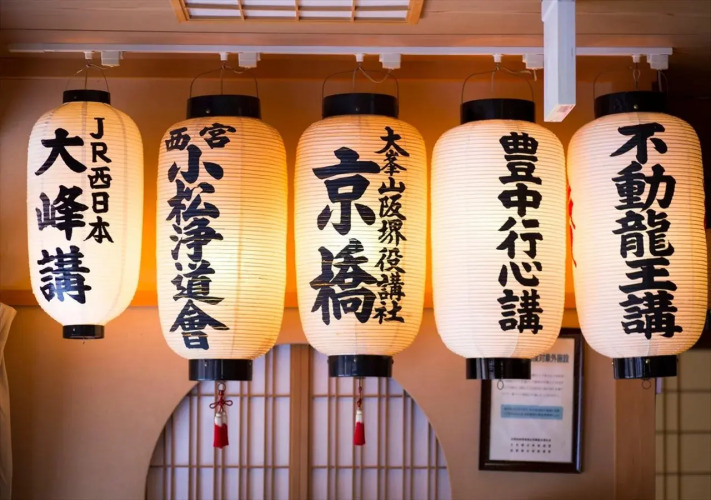 JR西日本
大峰講
西宮
小松浄道會
大峯山阪堺役講社
京橋
豊中行心講
不動龍王講